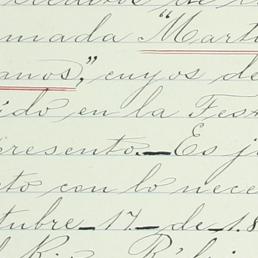 mada "Marti
anos," cuyos de
ido en la Fes
presento.—Es j
to con lo nece
tubre—17—de—18